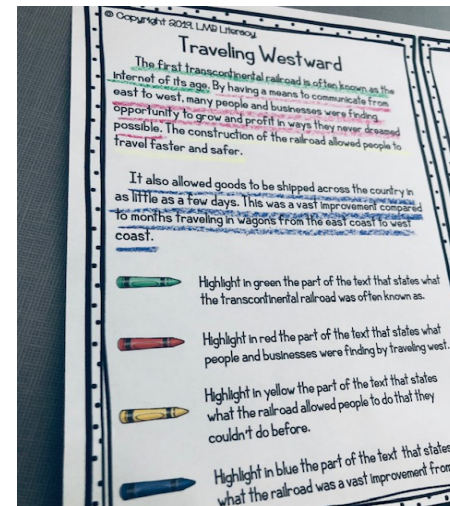 © Copyright 2019, LMB Literacy
Traveling Westward
The first transcontinental railroad is often known as the
internet of its age. By having a means to communicate from
east to west, many people and businesses were finding
opportunity to grow and profit in ways they never dreamed
possible. The construction of the railroad allowed people to
travel faster and safer.
It also allowed goods to be shipped across the country in
as little as a few days. This was a vast improvement compared
to months traveling in wagons from the east coast to west
coast.
Highlight in green the part of the text that states what
the transcontinental railroad was often known as.
Highlight in red the part of the text that states what
people and businesses were finding by traveling west.
Highlight in yellow the part of the text that states
what the railroad allowed people to do that they
couldn't do before.
Highlight in blue the part of the text that states
what the railroad was a vast improvement from